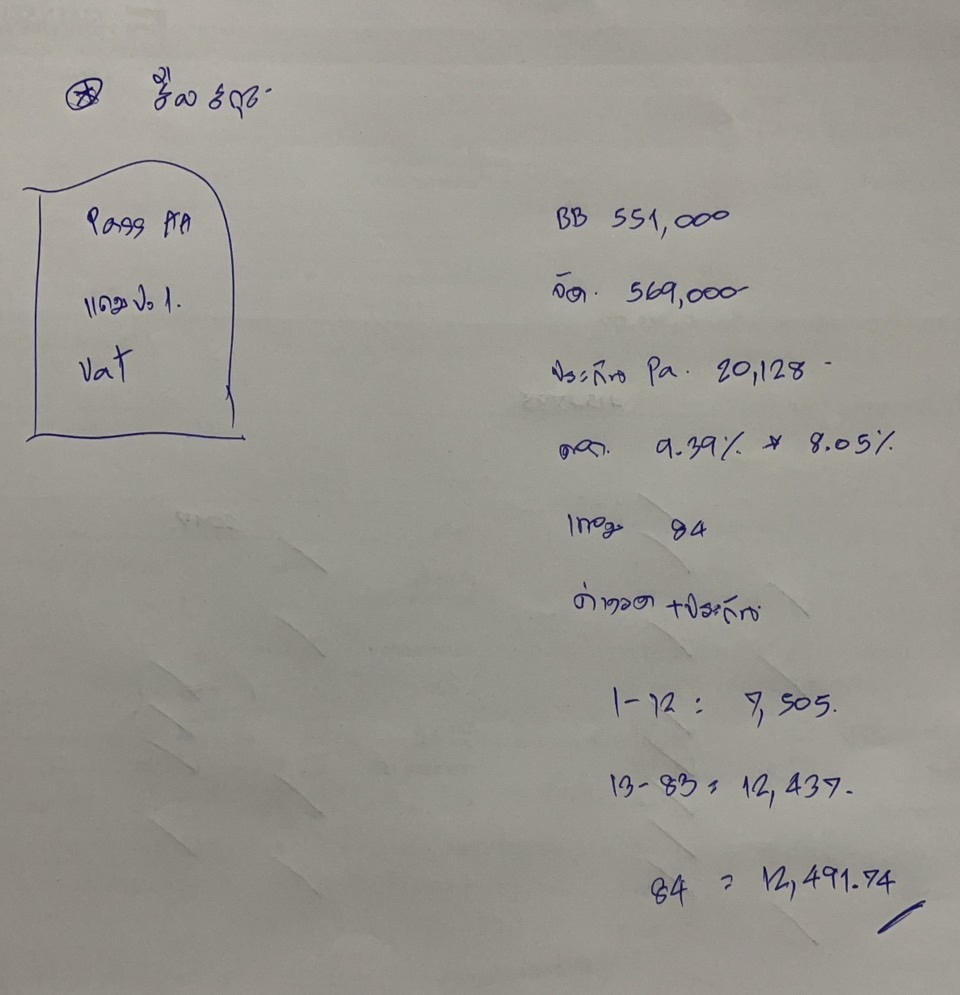 Pass
แถม ป. 1.
Vat
BB 551,000
จัด. 569,000
ประกัน Pa. 20,128 -
ดอก. 9.39% * 8.05%
เทอม 84
ค่างวด + ประกัน
1-12 = 7,505.
13-83 = 12,437.
84 = 12,491.74